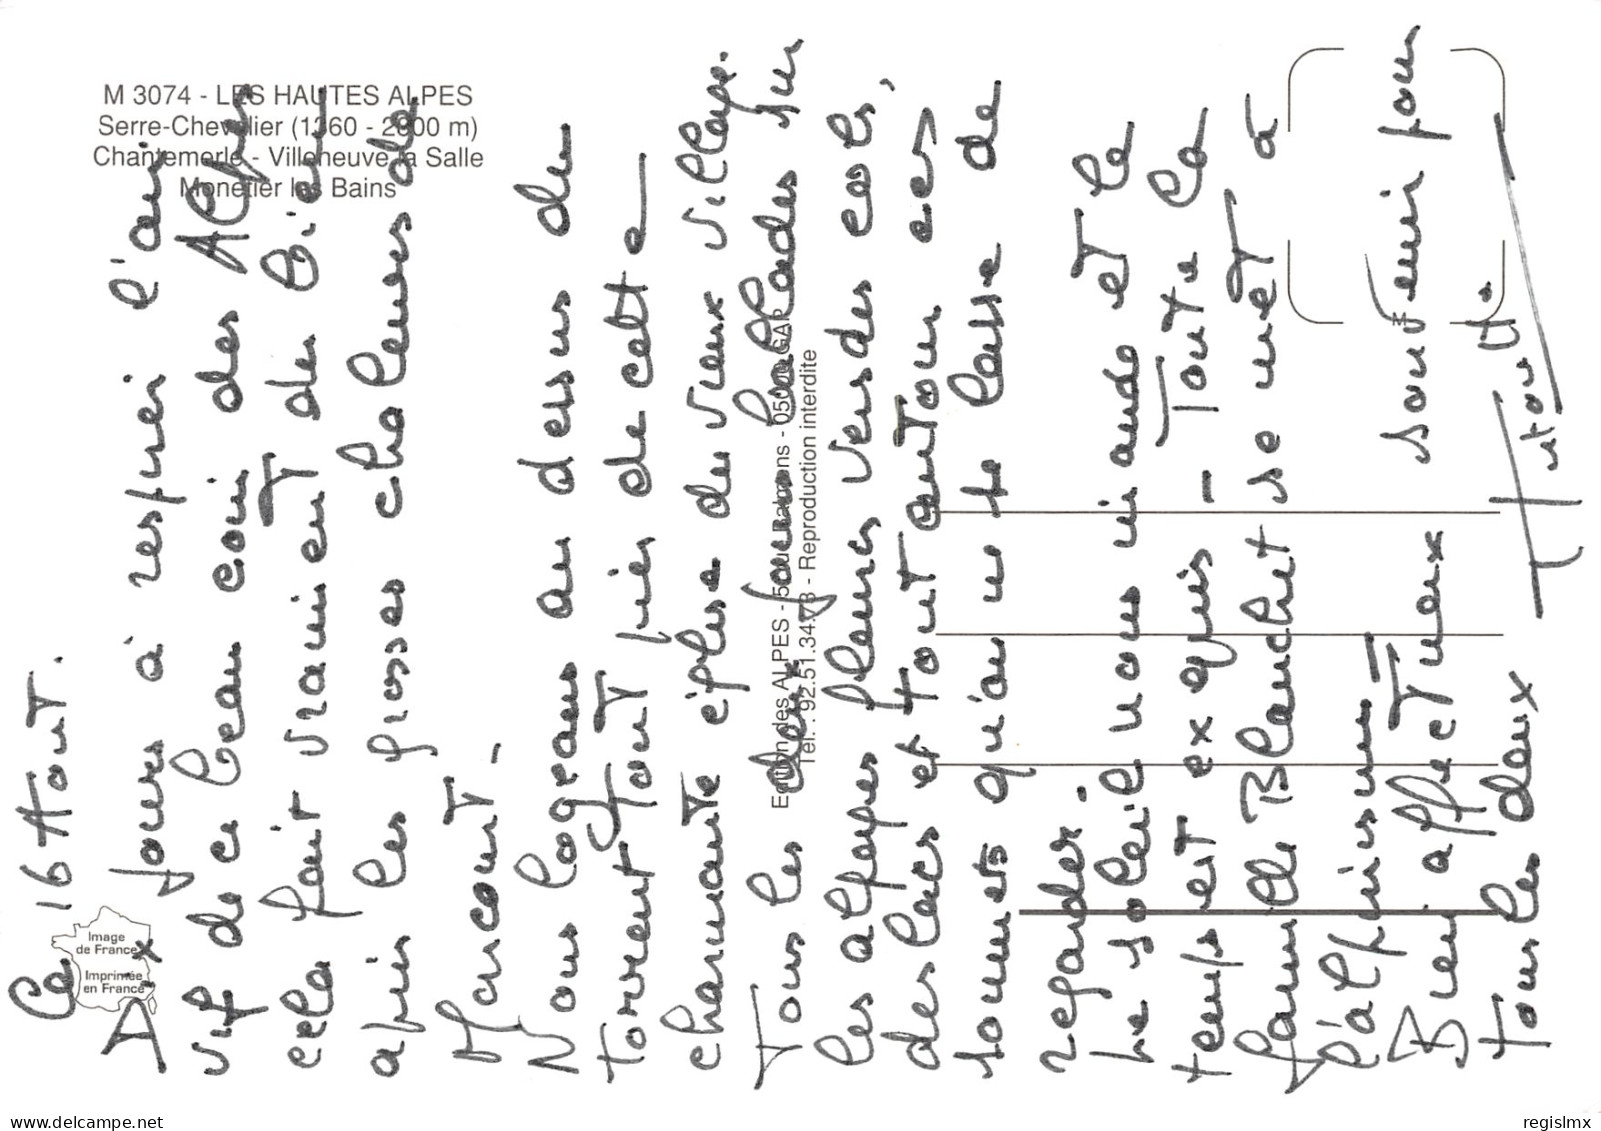 M 3074 - LES HAUTES ALPES
Serre-Chevalier (1360 - 2800 m)
Chantemerle - Villeneuve la Salle
Monetier les Bains
Image
de France
Imprimée
en France
Edition des ALPES - 05000 GAP
Tél. : 92.51.34.73 - Reproduction interdite
Le 16 Aout.
Dix jours à respirer l'air
vif de ce beau coin des Alpes
cela fait vraiment du bien
après les grosses chaleurs de
Nous logeons au dessus du
torrent tout près de cette
charmante église du vieux village.
Tous les deux jours ballades sur
les alpages fleuris vers des cols,
des lacs et tout autour ces
sommets qu'on ne se lasse de
regarder.
Le soleil nous inonde et le
temps est exquis - Toute la
famille Blanchet se met à
l'alpinisme
Bien affectueux souvenir pour
tous les deux
M
regislmx
delcampe.net